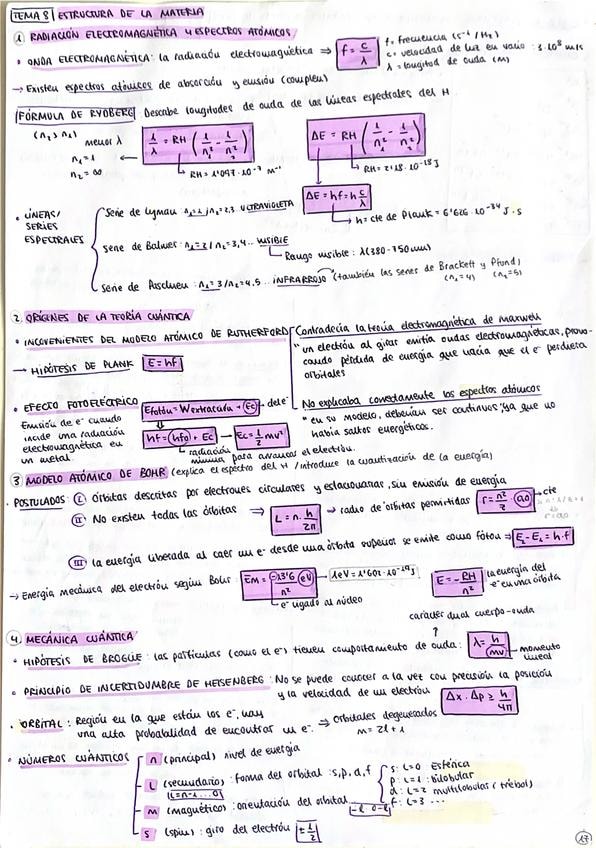 TEMA 8 ESTRUCTURA DE LA MATERIA
① RADIACIÓN ELECTROMAGNÉTICA Y ESPECTROS ATÓMICOS
• ONDA ELECTROMAGNÉTICA: la radiación electromagnética ⇒ f = c/λ
f = frecuencia (s⁻¹ / Hz)
c = velocidad de luz en vacío : 3·10⁸ m/s
λ = longitud de onda (m)
→ Existen espectros atómicos de absorción y emisión (complem)
FÓRMULA DE RYDBERG Describe longitudes de onda de las líneas espectrales del H
(n₂ > n₁)
menor λ
n₁ = 1
n₂ = ∞
1/λ = RH (1/n₁² - 1/n₂²)
RH = 1'097·10⁻⁷ m⁻¹
ΔE = RH (1/n₁² - 1/n₂²)
RH = 2'18·10⁻¹⁸ J
ΔE = hf = h c/λ
h = cte de Plank = 6'626·10⁻³⁴ J·s
• LÍNEAS/ SERIES ESPECTRALES
Serie de Lyman : n₁ = 1 / n₂ = 2,3.. ULTRAVIOLETA
Serie de Balmer : n₁ = 2 / n₂ = 3,4... VISIBLE
Rango visible : λ (380-750nm)
Serie de Paschen : n₁ = 3 / n₂ = 4,5... INFRARROJO (también las series de Brackett y Pfund)
(n₁=4) (n₁=5)
② ORÍGENES DE LA TEORÍA CUÁNTICA
• INCOVENIENTES DEL MODELO ATÓMICO DE RUTHERFORD
Contradecía la teoría electromagnética de maxwell
" un electrón al girar emitía ondas electromagnéticas, provo-
cando pérdida de energía que haría que el e⁻ perdiera
orbitales
No explicaba correctamente los espectros atómicos
" en su modelo, deberían ser continuos, ya que no
había saltos energéticos.
→ HIPÓTESIS DE PLANK E = hf
• EFECTO FOTOELÉCTRICO
Emisión de e⁻ cuando
incide una radiación
electromagnética en
un metal.
Efotón = Wextracción + Ec → del e⁻
hf = hf₀ + Ec → Ec = 1/2 mv²
radiación
mínima para arrancar el electrón.
③ MODELO ATÓMICO DE BOHR (explica el espectro del H / introduce la cuantización de la energía)
• POSTULADOS: Ⅰ Órbitas descritas por electrones circulares y estacionarias, sin emisión de energía
Ⅱ No existen todas las órbitas ⇒ L = n · h/2π → radio de órbitas permitidas r = n²/z · a₀ → cte
Ⅲ la energía liberada al caer un e⁻ desde una órbita superior se emite como fotón ⇒ E₂ - E₁ = h·f
→ Energía mecánica del electrón según Bohr : EM = -13'6 (eV)/n²
1eV = 1'602·10⁻¹⁹ J
e⁻ ligado al núcleo
E = - RH/n²
la energía del
e⁻ en una órbita
④ MECÁNICA CUÁNTICA
carácter dual cuerpo-onda
• HIPÓTESIS DE BROGLIE : las partículas (como el e⁻) tienen comportamiento de onda : λ = h/mv → momento lineal
• PRINCIPIO DE INCERTIDUMBRE DE HEISENBERG : No se puede conocer a la vez con precisión la posición
y la velocidad de un electrón Δx · Δp ≥ h/4π
• ORBITAL : Región en la que están los e⁻, hay
una alta probabilidad de encontrar un e⁻ ⇒ Orbitales degenerados
m = 2l + 1
• NÚMEROS CUÁNTICOS
n (principal) nivel de energía
L (secundario) : forma del orbital : s, p, d, f
L = n-1 ... 0
s : L=0 Esférica
p : L=1 : bilobular
d : L=2 multilobular (trébol)
f : L=3 ...
m (magnético) : orientación del orbital
-l 0 l
s (spin) : giro del electrón ± 1/2
17